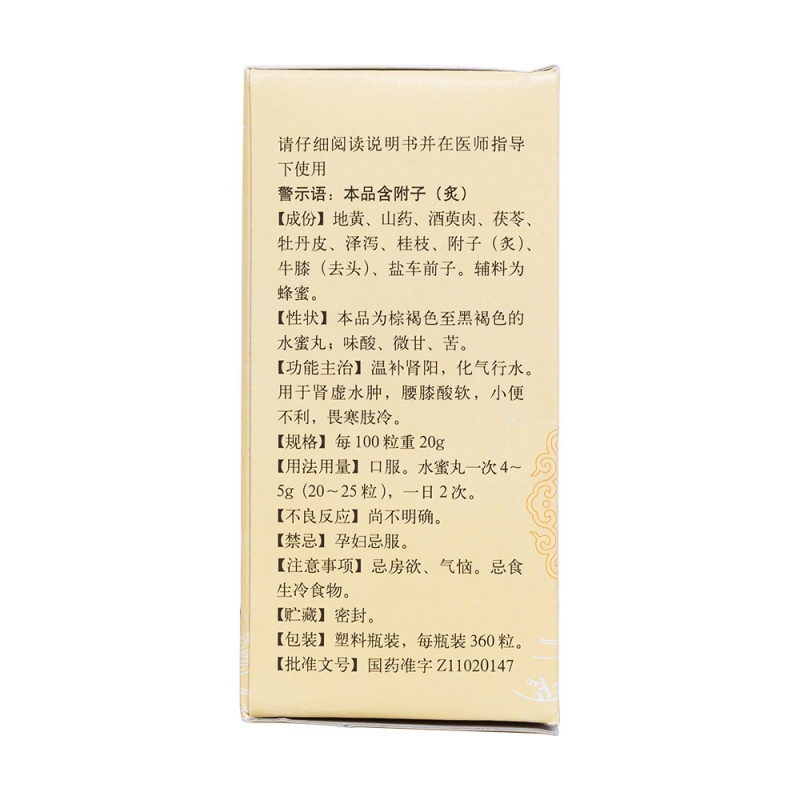 请仔细阅读说明书并在医师指导
下使用
警示语：本品含附子（炙）
【成份】地黄、山药、酒萸肉、茯苓、
牡丹皮、泽泻、桂枝、附子（炙）、
牛膝（去头）、盐车前子。辅料为
蜂蜜。
【性状】本品为棕褐色至黑褐色的
水蜜丸；味酸、微甘、苦。
【功能主治】温补肾阳，化气行水。
用于肾虚水肿，腰膝酸软，小便
不利，畏寒肢冷。
【规格】每100粒重20g
【用法用量】口服。水蜜丸一次4～
5g（20～25粒），一日2次。
【不良反应】尚不明确。
【禁忌】孕妇忌服。
【注意事项】忌房欲、气恼。忌食
生冷食物。
【贮藏】密封。
【包装】塑料瓶装，每瓶装360粒。
【批准文号】国药准字Z11020147